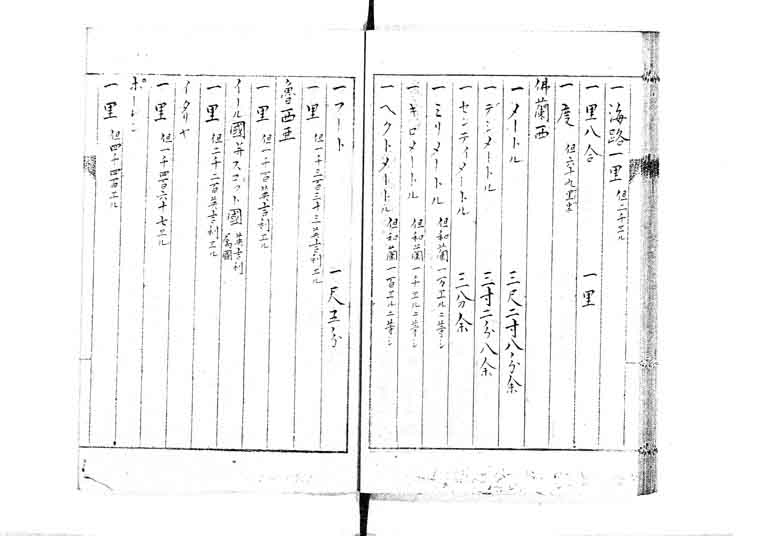 一海路一里 但二千エル
一里八合 一里
一度 但六十九里半
佛蘭西
一メートル 三尺二寸八分余
一デシメートル 三寸二分八余
一センティメートル 三分余
一ミリメートル 但和蘭一万エルニ等シ
一キロメートル 但和蘭一千エルニ等シ
一ヘクトメートル 但和蘭一百エルニ等シ
一フート 一尺五分
一里 但一千三百三十三英吉利エル
魯西亜
一里 但一千一百英吉利エル
イール國并スコット國 英吉利属國
一里 但二千二百英吉利エル
イタリヤ
一里 但一千四百六十七エル
ポーレン
一里 但四千四百エル